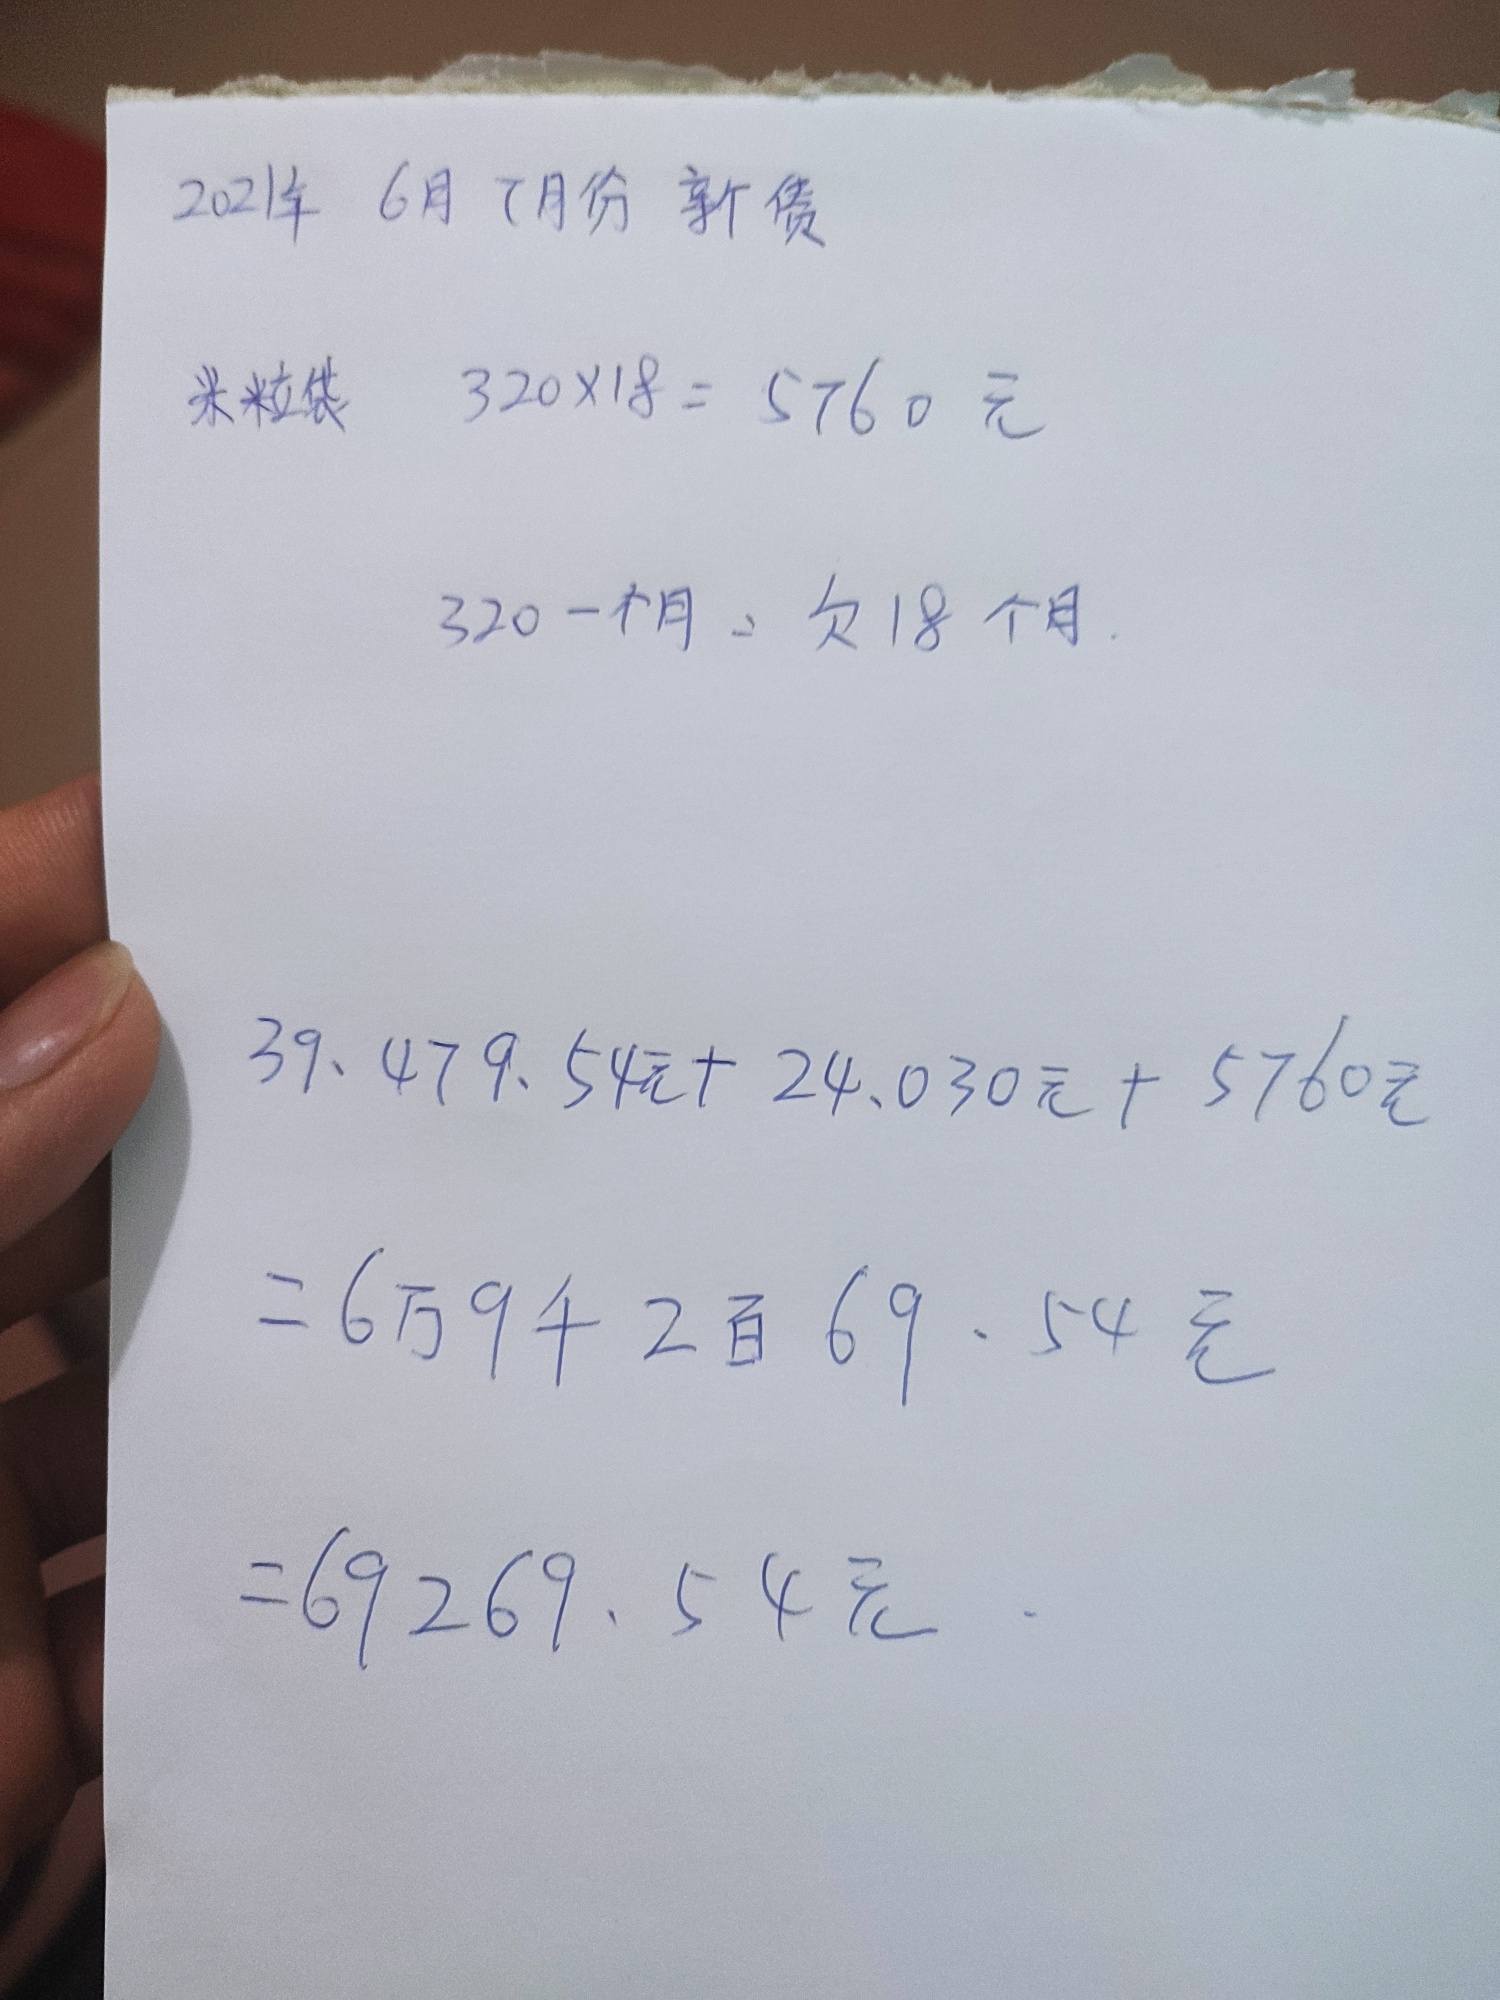 2021年 6月 7月份 新债
米粒袋 320×18=5760元
320一个月、欠18个月.
39.479.54元+24.030元+5760元
=6万9千2百69.54元
=69269.54元.